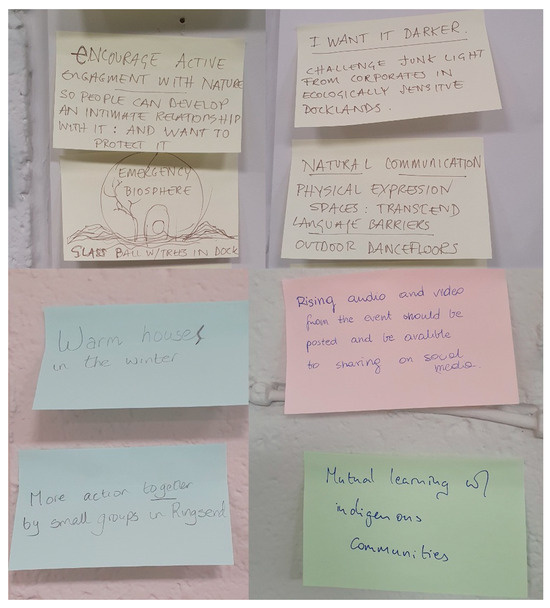 ENCOURAGE ACTIVE
ENGAGMENT WITH NATURE
SO PEOPLE CAN DEVELOP
AN INTIMATE RELATIONSHIP
WITH IT : AND WANT TO
PROTECT IT
EMERGENCY
BIOSPHERE
GLASS BALL W/TREES IN DOCK
I WANT IT DARKER.
CHALLENGE JUNK LIGHT
FROM CORPORATES IN
ECOLOGICALLY SENSITIVE
DOCKLANDS.
NATURAL COMMUNICATION
PHYSICAL EXPRESSION
SPACES : TRANSCEND
LANGUAGE BARRIERS
OUTDOOR DANCEFLOORS
Warm houses
in the winter
Rising audio and video
from the event should be
posted and be avalible
to sharing on social
media.
More action together
by small groups in Ringsend
Mutual learning w/
indigenous
Communities